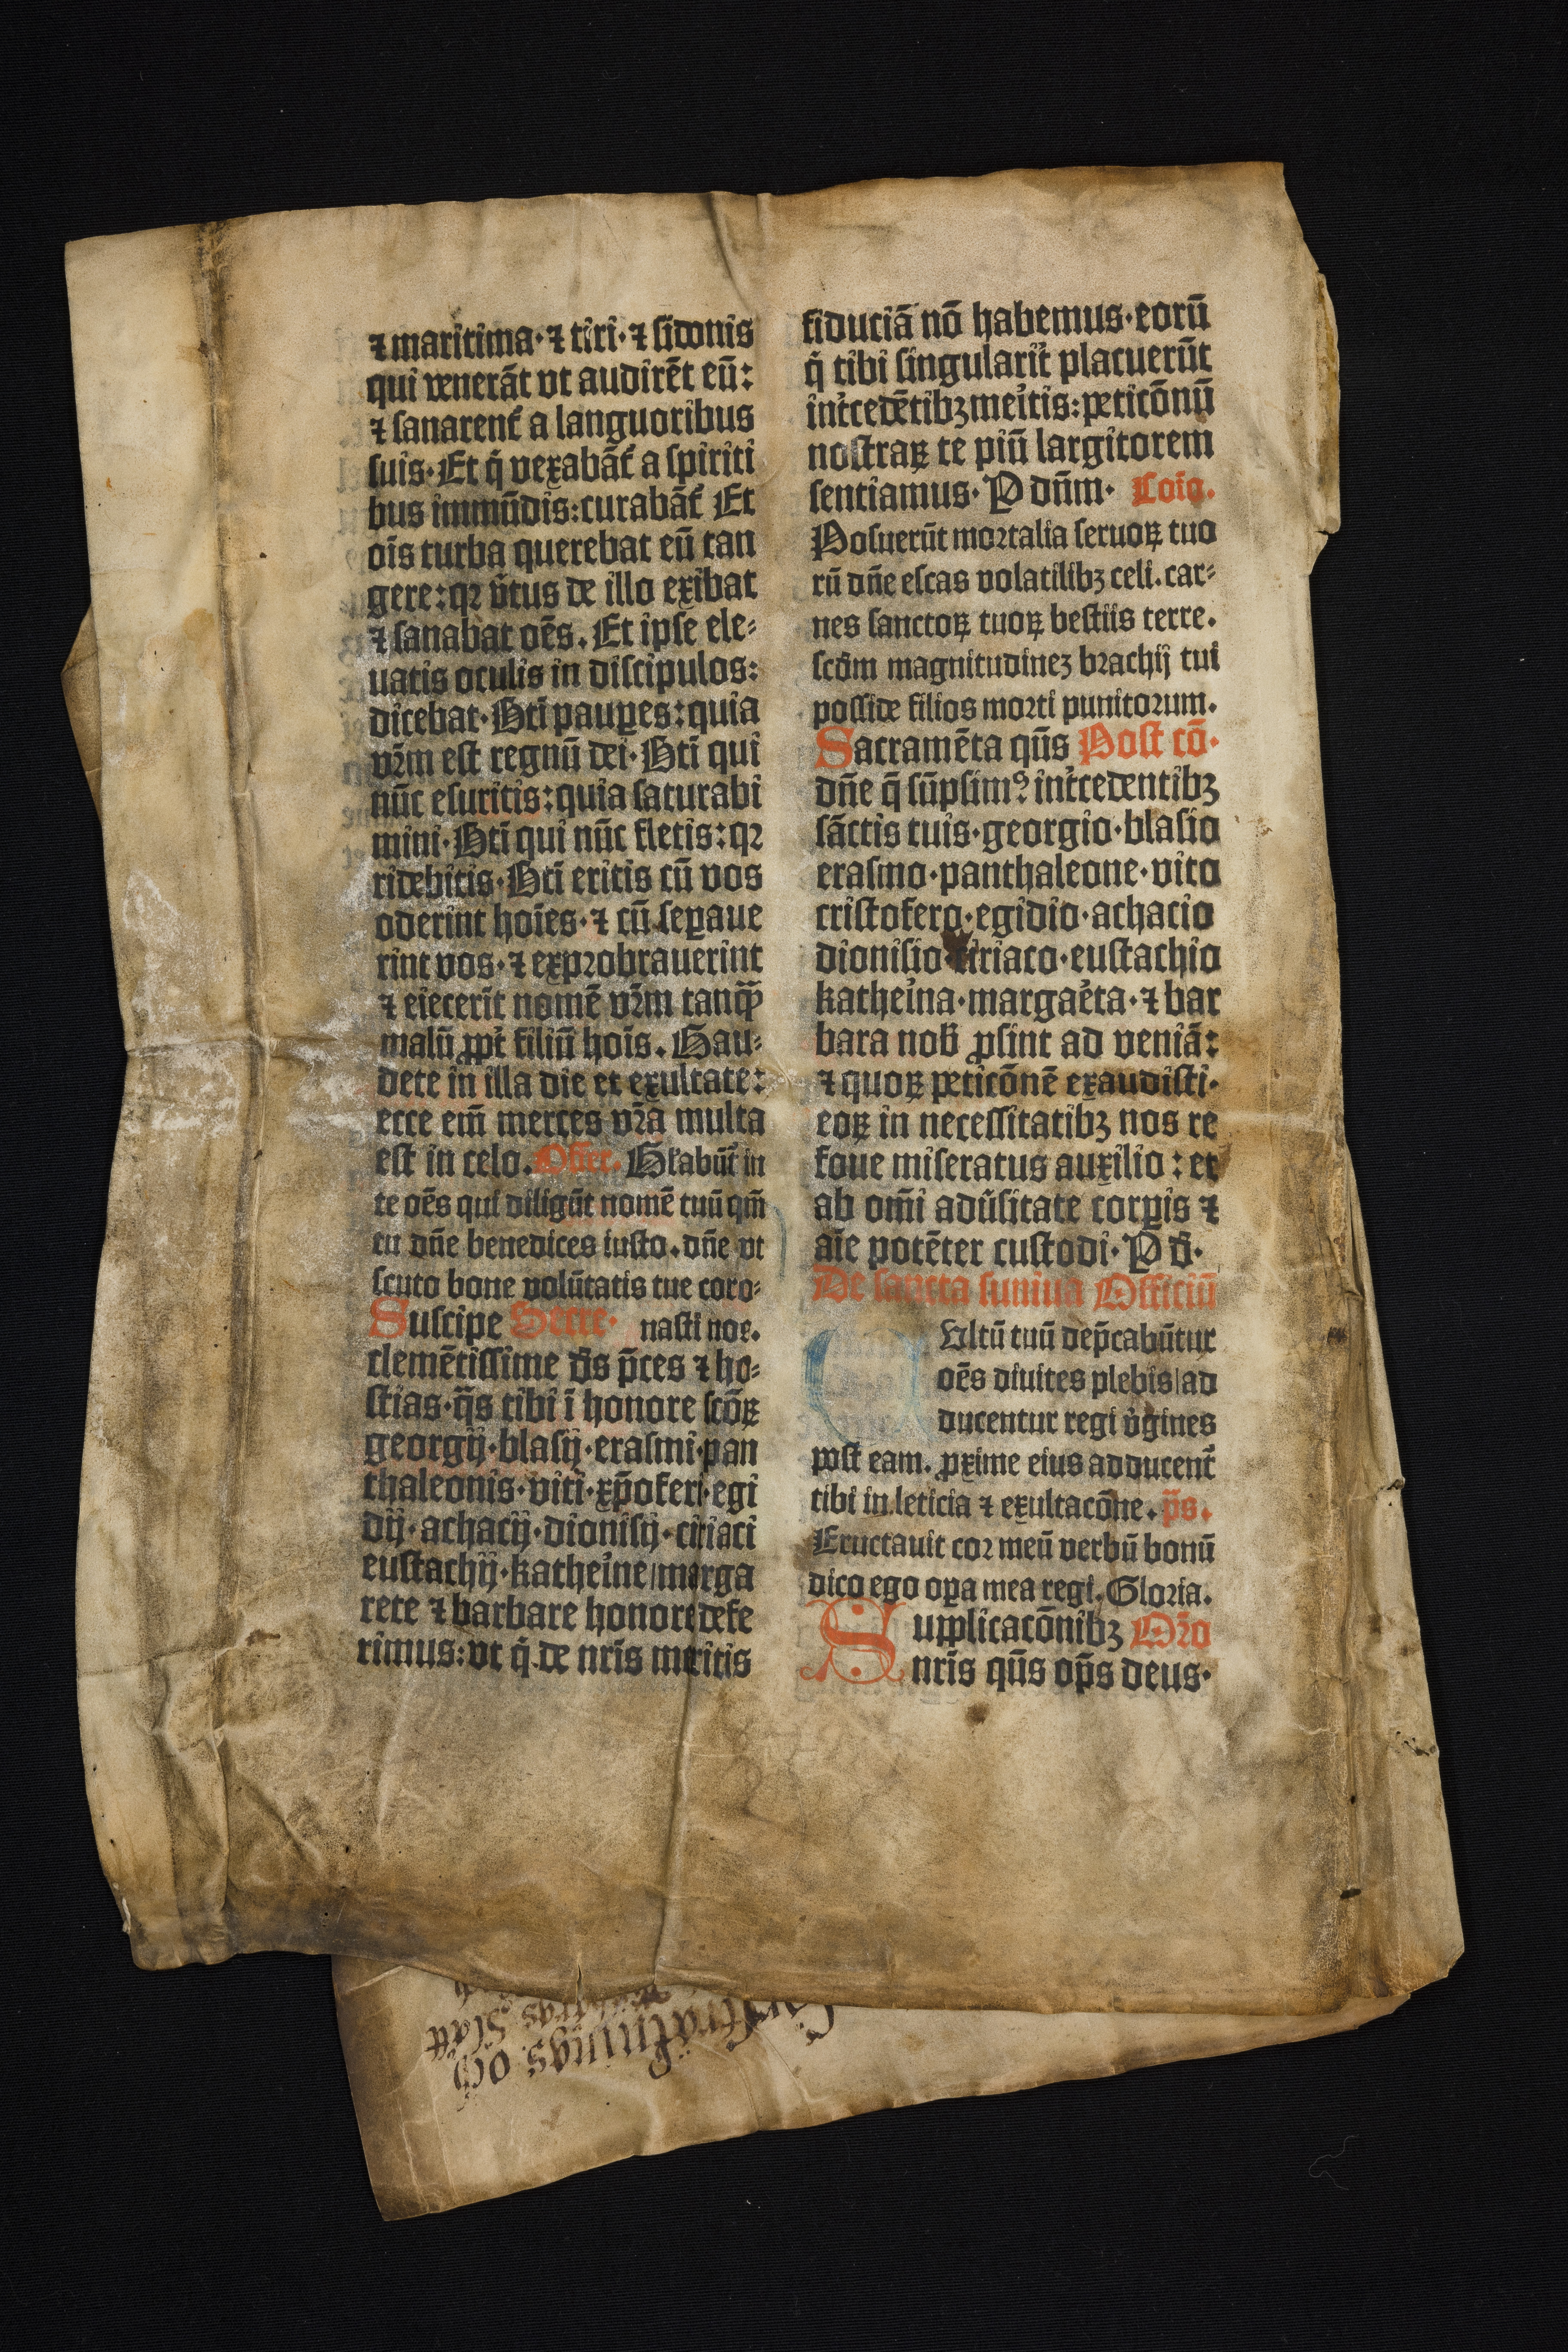 ⁊ maritima·⁊ tiri·⁊ sidonis
qui venerāt vt audirēt eū:
⁊ sanarent᷑ a languoribus
suis·Et q̇ vexabāt᷑ a spiriti
bus immūdis:curabāt᷑ Et
oīs turba querebat eū tan
gere:qꝛ v̓tus de illo exibat
⁊ sanabat oēs. Et ipse ele⸗
uatis oculis in discipulos:
dicebat·Bti̅ pauꝑes:quia
vr̄m est regnū dei·Bti̅ qui
nūc esuritis:quia saturabi
mini·Bti̅ qui nūc fletis:qꝛ
ridebitis·Bti̅ eritis cū vos
oderint hoīes·⁊ cū seꝑaue
rint vos·⁊ exprobrauerint
⁊ eiecerīt nomē vr̄m tanqꝫ̄
malū ꝓpt̓ filiū hoīs. Gau⸗
dete in illa die et exultate:
ecce em̄ merces vr̄a multa
est in celo. Offer. Gl'abūt᷑ in
te oēs qui diligūt nomē tuū qm̄
tu dn̄e benedices iusto. dn̄e vt
scuto bone volūtatis tue coro⸗
Suscipe Secre· nasti nos.
clemētissime ds̄ p̄ces ⁊ ho⸗
stias·q̄s tibi ī honore scō⁊ꝝ
georgij·blasij·erasmi·pan
thaleonis·viti·xp̄oferi·egi
dij·achacij·dionisij·ciriaci
eustachij·kathe̓ine/marga
rete ⁊ barbare honore defe
rimus:vt q̇ de nr̄is meritis
fiduciā nō habemus·eorū
q̇ tibi singularit̓ placuerūt
int̓cedētibꝫ mei̓tis:peticōnū
nostraꝝ te piū largitorem
sentiamus· P dn̄m· Coīo.
Posuerūt mortalia seruoꝝ tuo
rū dn̄e escas volatilibꝫ celi.car⸗
nes sanctoꝝ tuoꝝ bestiis terre.
scd̄m magnitudineꝫ brachij tui
posside filios morti punitorum.
Sacramēta qūs Post cō·
dn̄e q̄ sūpsimꝰ int̓cedentibꝫ
sāctis tuis·georgio·blasio
erasmo·panthaleone·vito
cristofero·egidio·achacio
dionisio·ciriaco·eustachio
kathei̓na·margae̓ta·⁊ bar
bara nob̄ ꝓsint ad veniā:
⁊ quoꝝ peticōnē exaudisti·
eoꝝ in necessitatibꝫ nos re
foue miseratus auxilio: et
ab om̄i adu̓sitate corꝑis ⁊
aīe potēter custodi· P d̄·
De sancta suniua Officiū
Vltū tuū dep̄cabūtur
oēs diuites plebis/ad
ducentur regi v̓gines
post eam. ꝓxime eius adducent᷑
tibi in leticia ⁊ exultacōne. ps̄.
Eructauit cor meū verbū bonū
dico ego oꝑa mea regi. Gloria.
Supplicacōnibꝫ Or̄o
nr̄is qūs op̄s deus·
och
Slätt